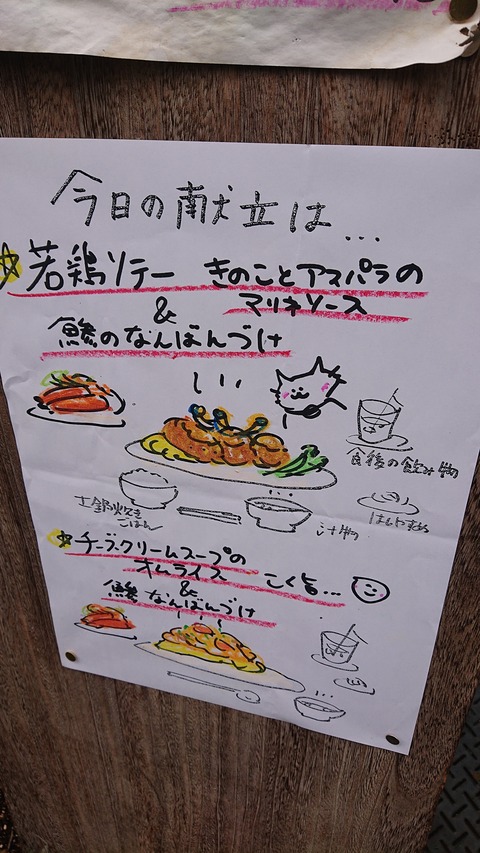 今日の献立は...
若鶏ソテー きのことアスパラの
マリネソース
&
鯵のなんばんづけ
食後の飲み物
土鍋炊き
ごはん
汁物
はしやすめ
チーズクリームスープの
オムライス こく旨...
&
鯵 なんばんづけ